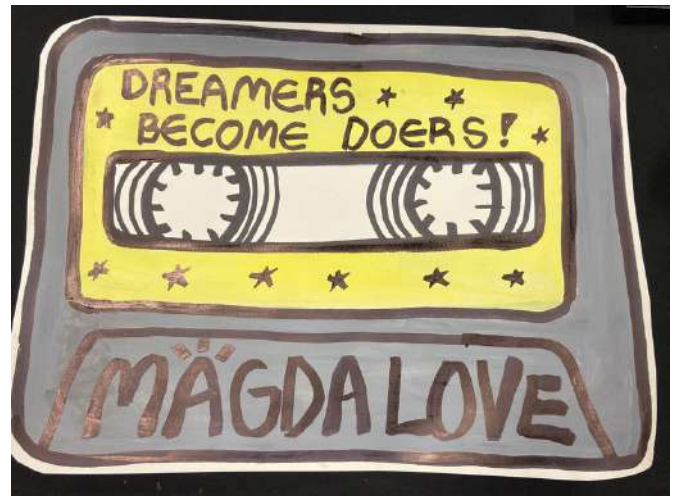 DREAMERS
BECOME DOERS!
MÄGDA LOVE